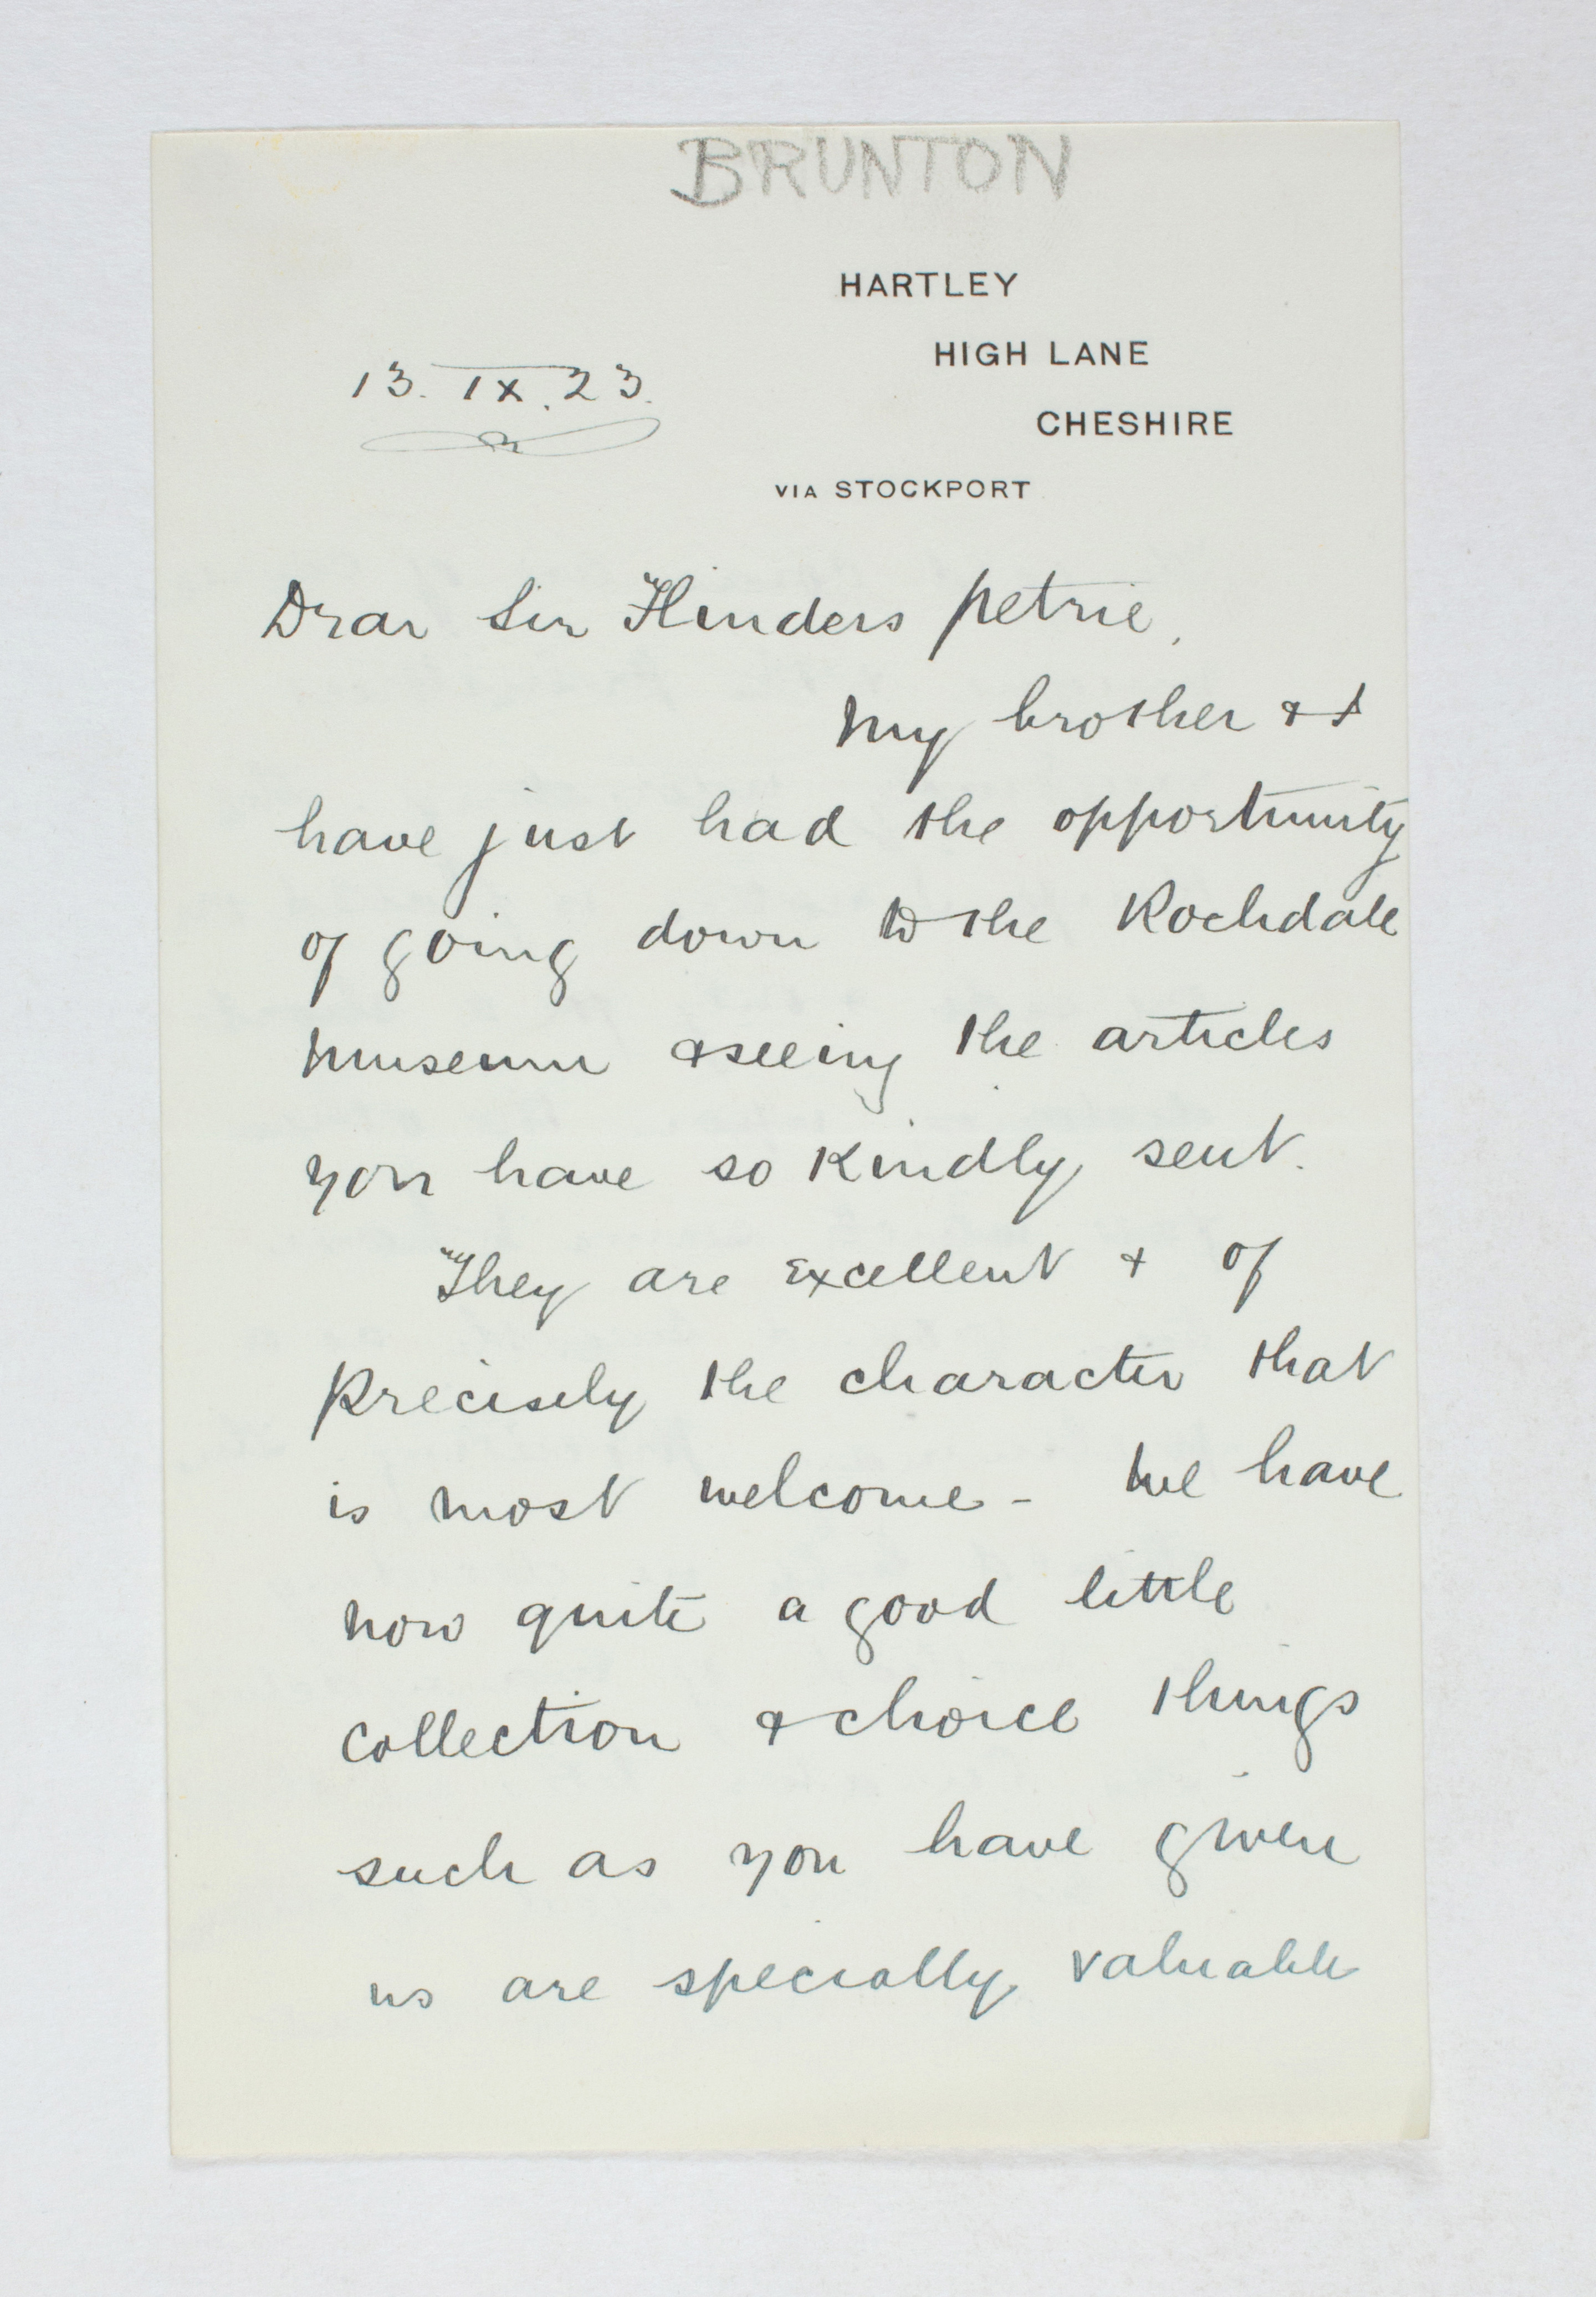 BRUNTON
HARTLEY
HIGH LANE
CHESHIRE
VIA STOCKPORT
13. IX. 23.
Dear Sir Flinders Petrie,
My brother & I
have just had the opportunity
of going down to the Rochdale
Museum & seeing the articles
you have so kindly sent.
They are excellent & of
precisely the character that
is most welcome - We have
now quite a good little
collection & choice things
such as you have given
us are specially valuable